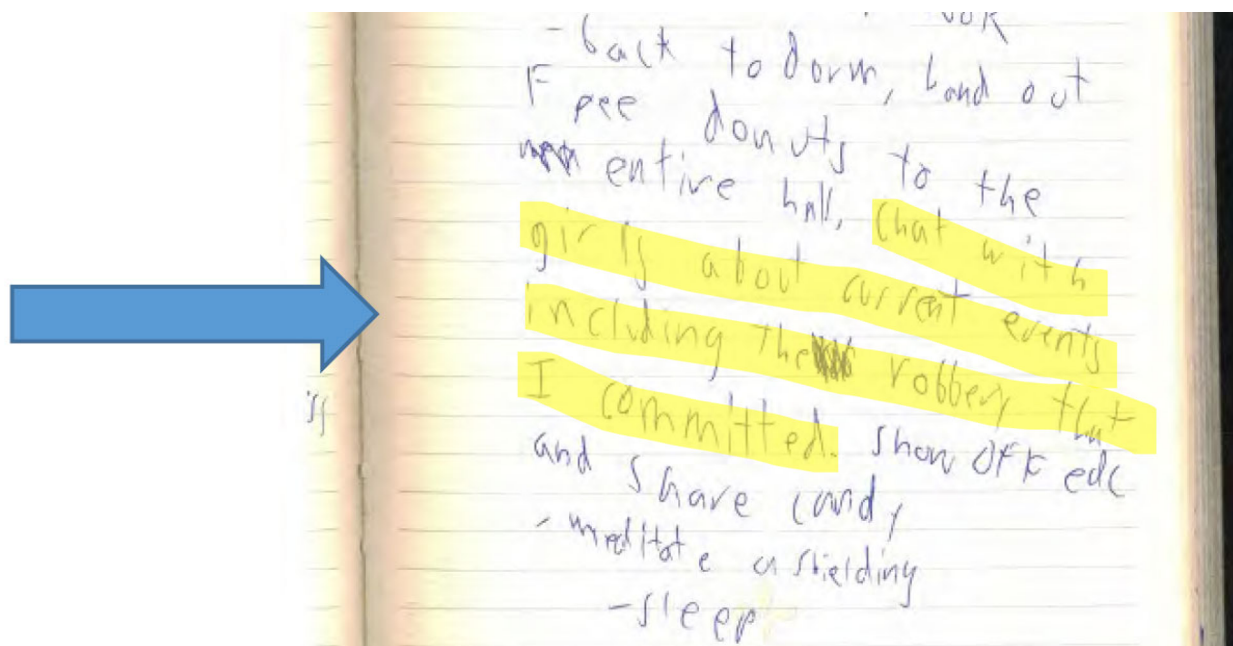 - back to dorm, hand out
Free donuts to the
entire hall, chat with
girls about current events
including the robbery that
I committed. Show off edc
and share candy
- meditate on shielding
- sleep